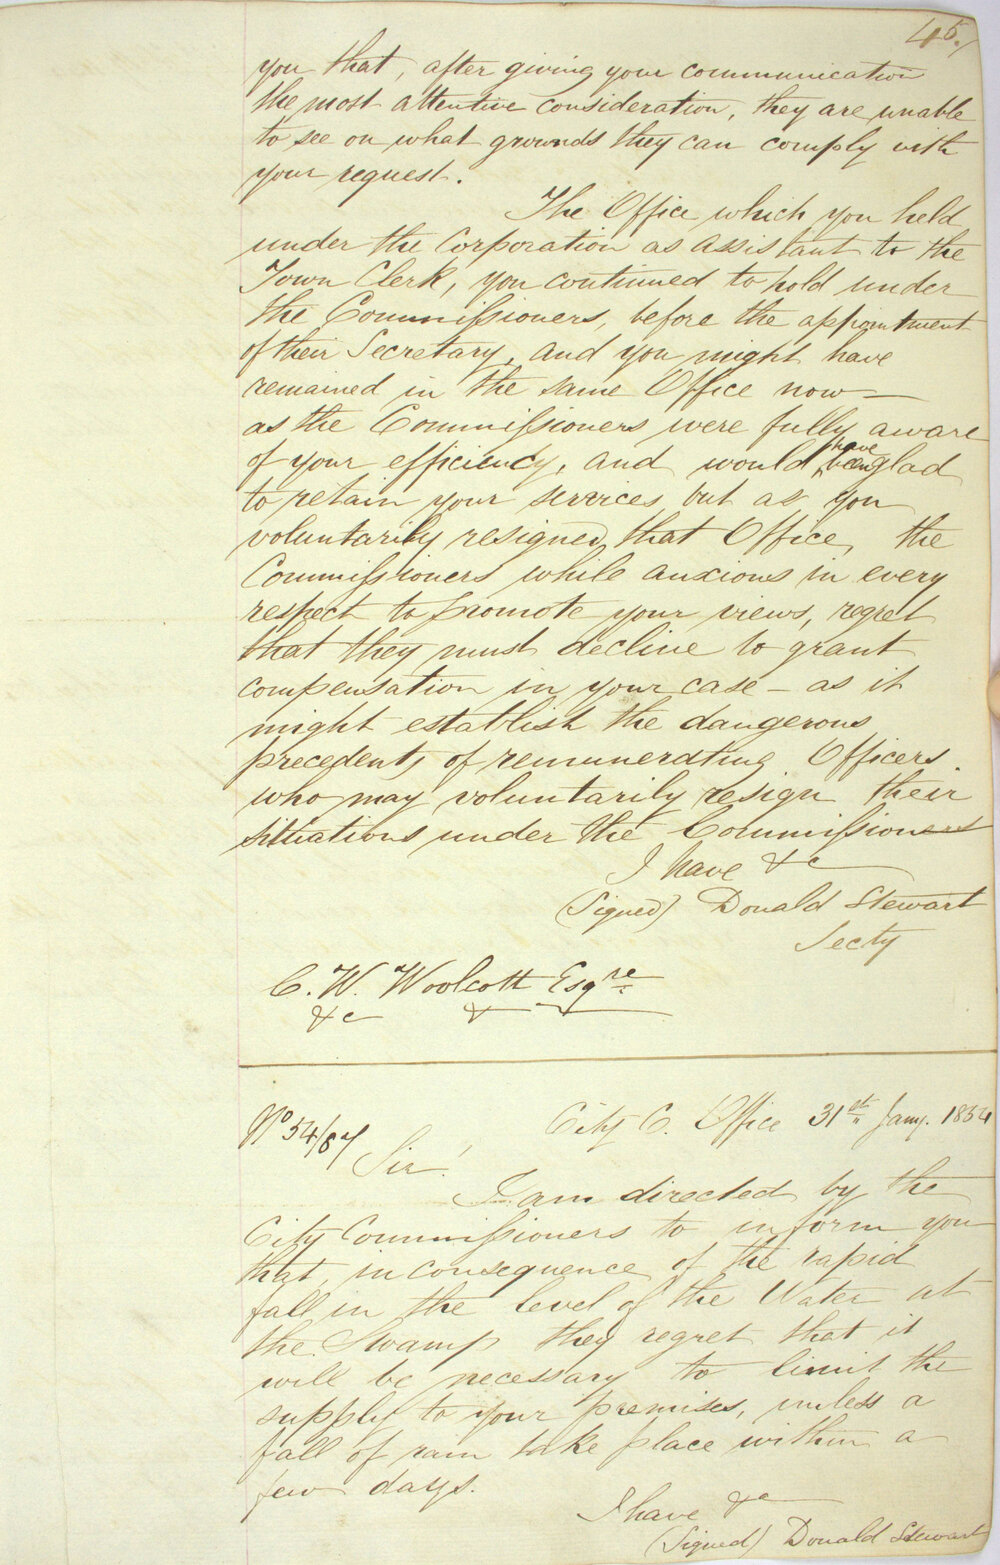 45./
you that, after giving your communication
the most attentive consideration, they are unable
to see on what grounds they can comply with
your request.
The Office which you held
under the Corporation as Assistant to the
Town Clerk, you continued to hold under
the Commissioners, before the appointment
of their Secretary, and you might have
remained in the same Office now —
as the Commissioners were fully aware
of your efficiency, and would have been glad
to retain your services but as you
voluntarily resigned that Office, the
Commissioners while anxious in every
respect to promote your views, regret
that they must decline to grant
compensation in your case – as it
might establish the dangerous
precedent of remunerating Officers
who may voluntarily resign their
situations under the Commissioners
I have &c
(Signed) Donald Stewart
Secty
C. W. Woolcott Esqre
&c &
No 54/87
City C. Office 31st Jany. 1854
Sir!
I am directed by the
City Commissioners to inform you
that, in consequence of the rapid
fall in the level of the Water at
the Swamp they regret that it
will be necessary to limit the
supply to your premises, unless a
fall of rain take place within a
few days.
I have &c
(Signed) Donald Stewart